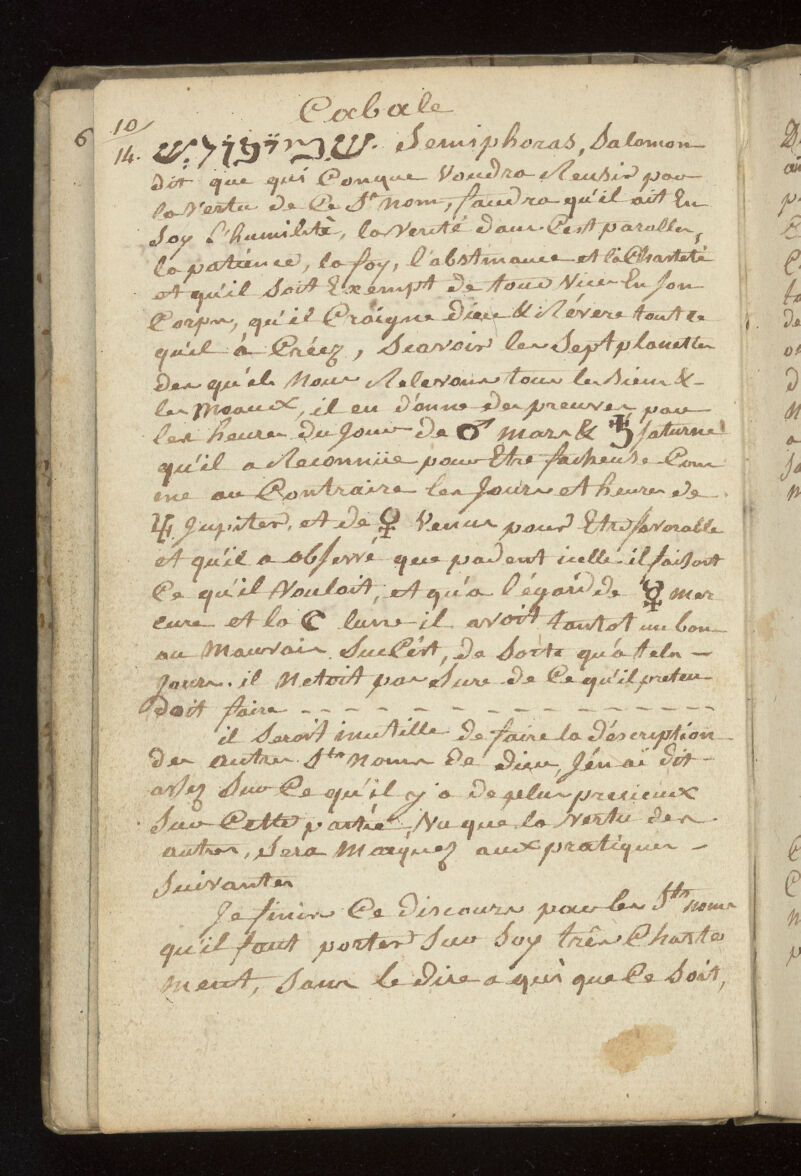 Cabale
10/
6
14. Semiphoras, Salomon
dit que qui Conque Voudra Reusir par
la Vertu de Ce St nom, faudra qu'il ait En
Soy l'humilitè, la Verité dans Cest parolles,
la patience, la foy, l'abstinance et la Chasteté
et qu'il Soit Exempt de tous Vices En Son
Corps, qu'il Craigne dieu & Révere tout ce
qu'il á Créez, Scavoir les Sept planettes
des qu'els Nous Relevons tous les Biens &
les Meaux, il en donne des preuves par
les heures du Jour de ♂ mars & ♄ Saturne
qu'il a Reconnüe pour Etre facheuse Com
me au Contraire les Jours et heures de
♃ Jupiter, et de ♀ Venus pour Etre favorable
et qu'il a obServé que padent icelle il faisoit
Ce qu'il Vouloit, et qu'a l'égard de ☿ mer
cure et la ☾ lune il avoit tantot un bon
ou Mauvais Succést, de Sorte qu'a tels
Jours il Netoit pas Sure de Ce qu'il preten
doit faire - - - - - - - - - - - - - - - -
il Seroit inutille de faire la déscription
des autres Sts noms de dieu, J'én ai dit
assez Sur Ce qu'il y a de plus precieux
Sur Cette partie, Vu que la Vertu des
autres, Sera Marquez aux pratiques
Suivantes
Je finis Ce discours par les Sts noms
qu'il faut porter Sur Soy três Chaste
ment, Sans le dire a qui que Ce Soit,